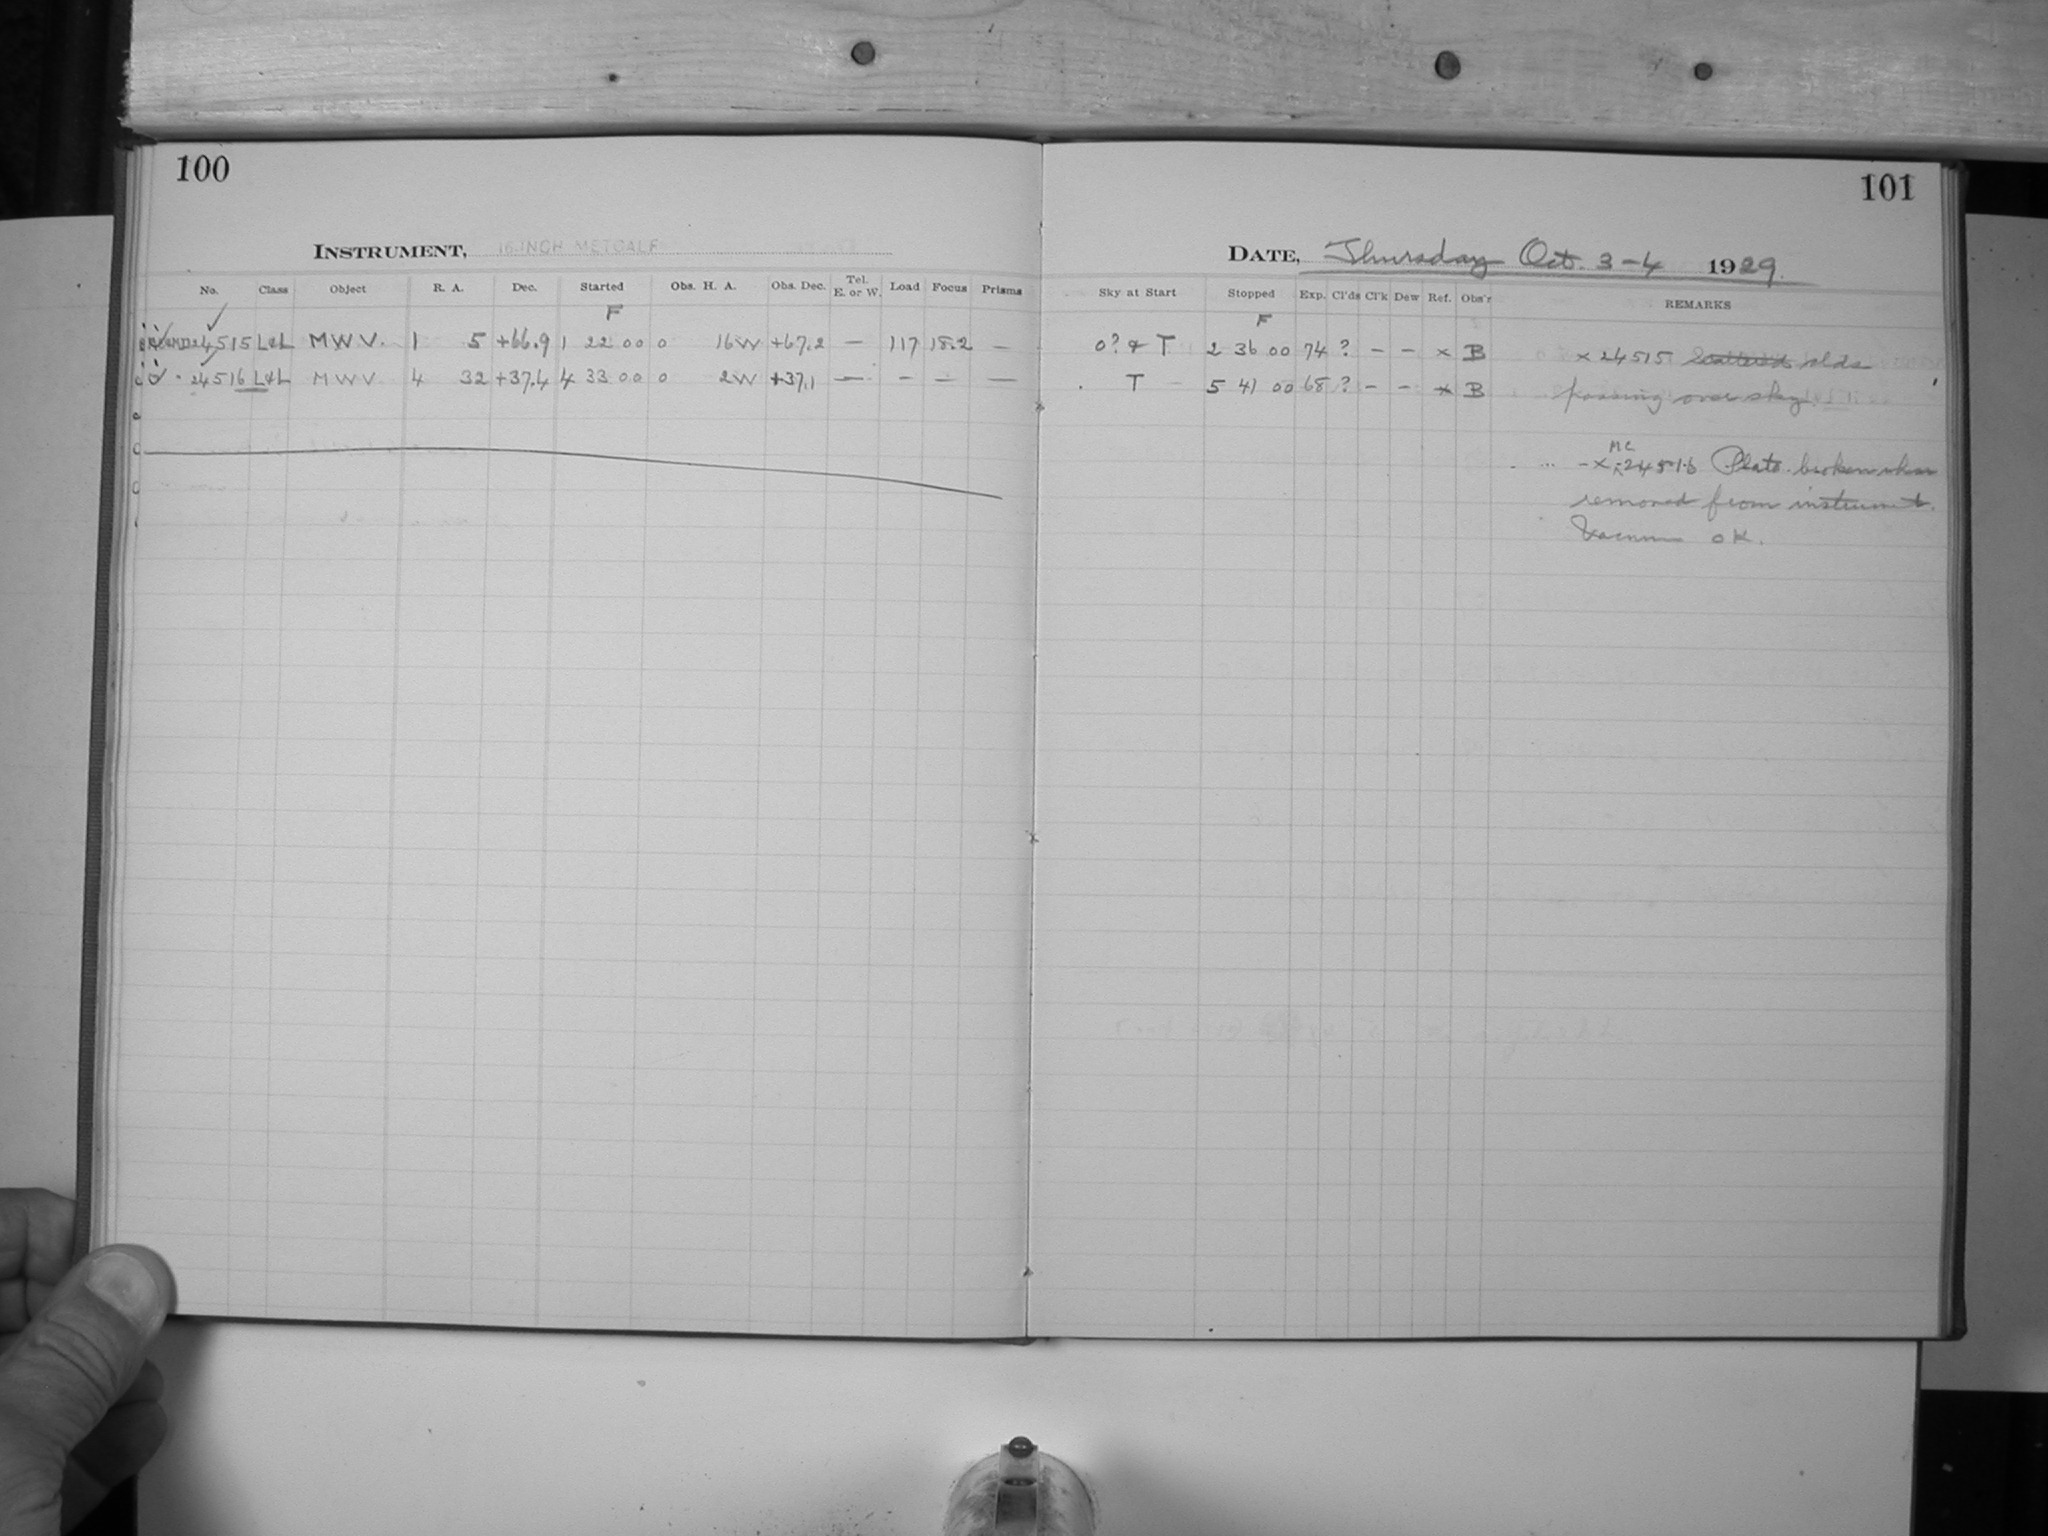 100
INSTRUMENT, 16-INCH METCALF
No. Class Object R. A. Dec. Started Obs. H. A. Obs. Dec. Tel. E. or W. Load Focus Prisms
F
24515 L&L M W V. 1 5 +66.9 1 22 00 0 16W +67.2 — 117 18.2 —
24516 L&L M W V 4 32 +37.4 4 33 00 0 2W +37.1 — – – —
101
DATE, Thursday Oct. 3-4 1929
Sky at Start Stopped Exp. Cl'ds Cl'k Dew Ref. Obs'r REMARKS
F
0? & T 2 36 00 74 ? – – x B x 24515 Scattered clds
T 5 41 00 68 ? – – x B passing over sky.
MC
-x 24516 Plate broken when
removed from instrument.
Vacuum OK.